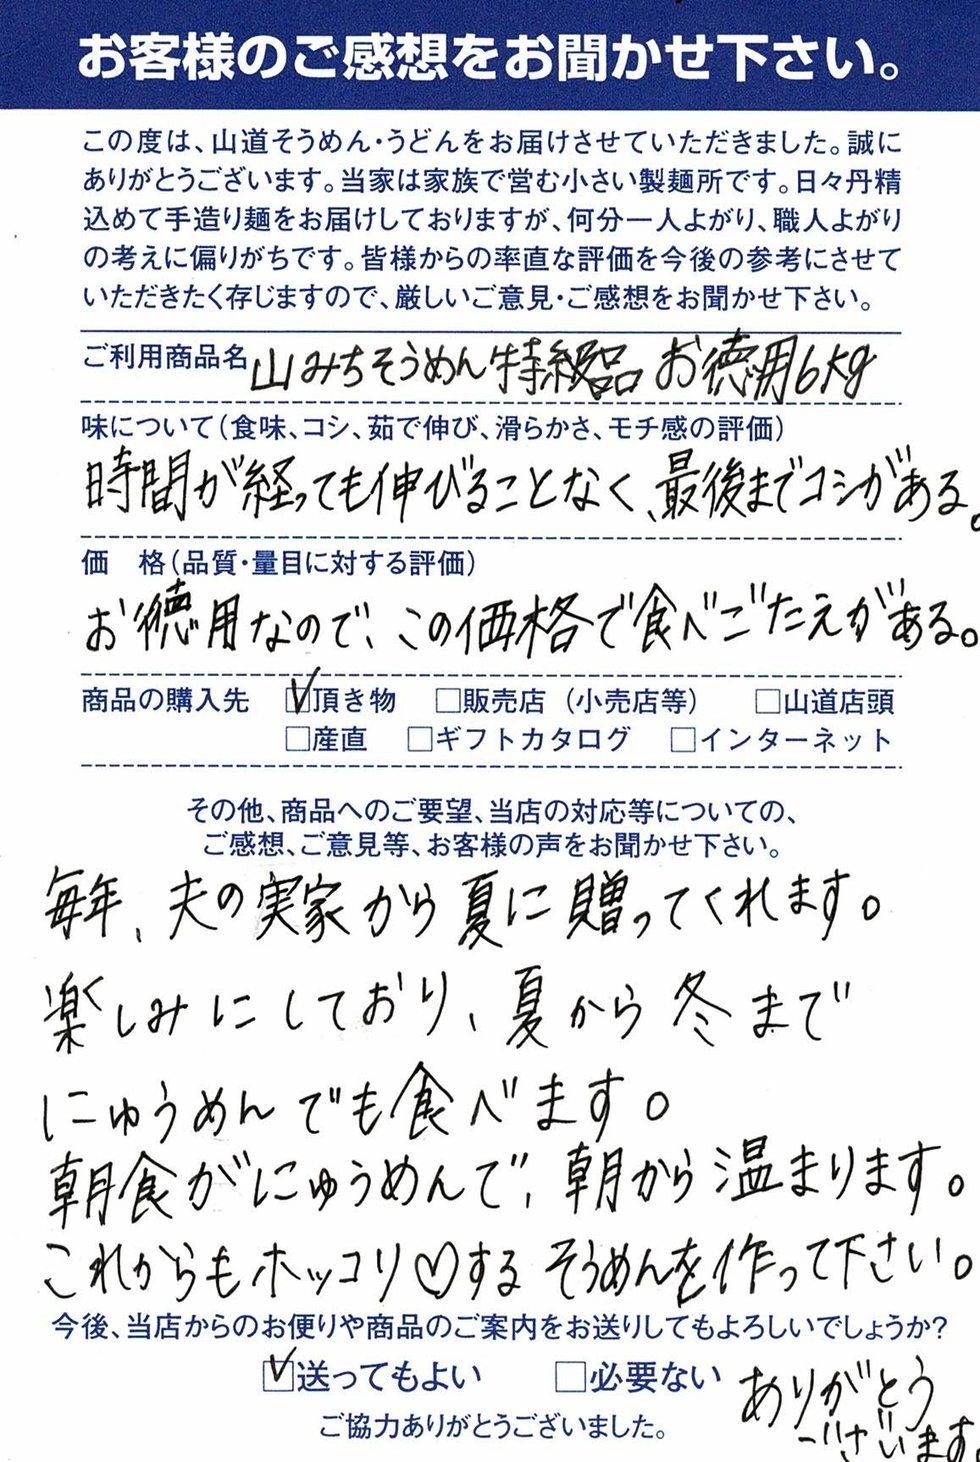 お客様のご感想をお聞かせ下さい。
この度は、山道そうめん・うどんをお届けさせていただきました。誠に
ありがとうございます。当家は家族で営む小さい製麺所です。日々丹精
込めて手造り麺をお届けしておりますが、何分一人よがり、職人よがり
の考えに偏りがちです。皆様からの率直な評価を今後の参考にさせて
いただきたく存じますので、厳しいご意見・ご感想をお聞かせ下さい。
ご利用商品名 山みちそうめん特級品 お徳用6kg
味について(食味、コシ、茹で伸び、滑らかさ、モチ感の評価)
時間が経っても伸びることなく、最後までコシがある。
価 格(品質・量目に対する評価)
お徳用なので、この価格で食べごたえがある。
商品の購入先 ☑頂き物 □販売店(小売店等) □山道店頭
□産直 □ギフトカタログ □インターネット
その他、商品へのご要望、当店の対応等についての、
ご感想、ご意見等、お客様の声をお聞かせ下さい。
毎年、夫の実家から夏に贈ってくれます。
楽しみにしており、夏から冬まで
にゅうめんでも食べます。
朝食がにゅうめんで、朝から温まります。
これからもホッコリ♡するそうめんを作って下さい。
今後、当店からのお便りや商品のご案内をお送りしてもよろしいでしょうか?
☑送ってもよい □必要ない ありがとう
ございます。
ご協力ありがとうございました。